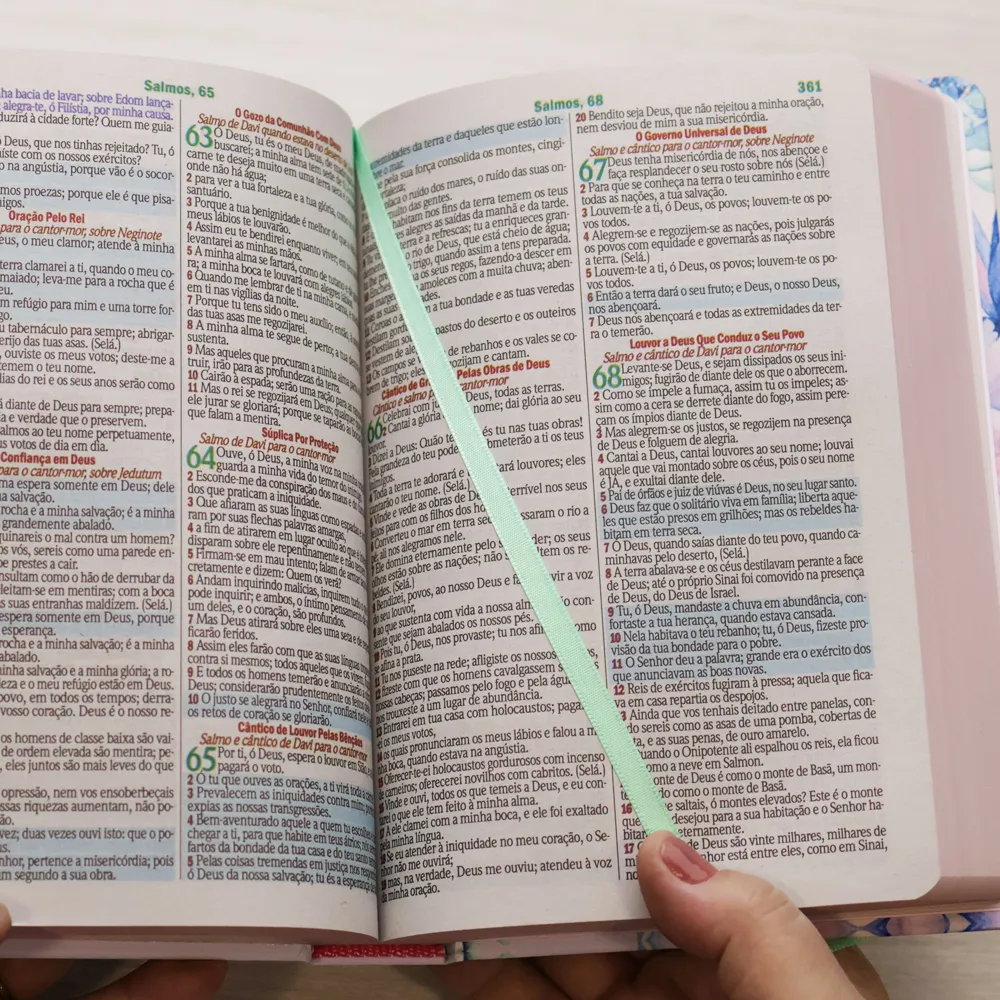 Salmos, 65
ha bacia de lavar; sobre Edom lança-
alegra-te, ó Filístia, por minha causa.
duzirá à cidade forte? Quem me guia-
Deus, que nos tinhas rejeitado? Tu, ó
íste com os nossos exércitos?
o na angústia, porque vão é o socor-
mos proezas; porque ele é que pisa-
migos.
Oração Pelo Rei
para o cantor-mor, sobre Neginote
eus, o meu clamor; atende à minha
terra clamarei a ti, quando o meu co-
maiado; leva-me para a rocha que é
eu.
m refúgio para mim e uma torre for-
go.
u tabernáculo para sempre; abrigar-
erijo das tuas asas. (Selá.)
, ouviste os meus votos; deste-me a
temem o teu nome.
dias do rei e os seus anos serão como
á diante de Deus para sempre; prepa-
a e verdade que o preservem.
salmos ao teu nome perpetuamente,
us votos de dia em dia.
Confiança em Deus
para o cantor-mor, sobre Jedutum
ma espera somente em Deus; dele
a salvação.
rocha e a minha salvação; é a minha
grandemente abalado.
quinareis o mal contra um homem?
s vós, sereis como uma parede en-
be prestes a cair.
nsultam como o hão de derrubar da
eleitam-se em mentiras; com a boca
s suas entranhas maldizem. (Selá.)
espera somente em Deus, porque
esperança.
rocha e a minha salvação; é a minha
abalado.
inha salvação e a minha glória; a ro-
leza e o meu refúgio estão em Deus.
povo, em todos os tempos; derra-
vosso coração. Deus é o nosso re-
os homens de classe baixa são vai-
de ordem elevada são mentira; pe-
eles juntos são mais leves do que
opressão, nem vos ensoberbeçais
ssas riquezas aumentam, não po-
ão.
vez; duas vezes ouvi isto: que o po-
us.
nhor, pertence a misericórdia; pois
m segundo a sua obra.
O Gozo da Comunhão Com Deus
Salmo de Davi quando estava no deserto
63 Ó Deus, tu és o meu Deus, de
buscarei; a minha alma tem sede
carne te deseja muito em uma terra seca
onde não há água;
2 para ver a tua fortaleza e a tua glória,
santuário.
3 Porque a tua benignidade é melhor do que
meus lábios te louvarão.
4 Assim eu te bendirei enquanto viver; em
levantarei as minhas mãos.
5 A minha alma se fartará, como de tutano
ra; a minha boca te louvará com alegres lábios
6 Quando me lembrar de ti na minha cama,
em ti nas vigílias da noite.
7 Porque tu tens sido o meu auxílio; então,
das tuas asas me regozijarei.
8 A minha alma te segue de perto; a tua
sustenta.
9 Mas aqueles que procuram a minha alma
truir, irão para as profundezas da terra.
10 Cairão à espada; serão uma ração
11 Mas o rei se regozijará em Deus; qualquer
ele jurar se gloriará; porque se taparão as bocas
que falam a mentira.
Súplica Por Proteção
Salmo de Davi para o cantor-mor
64 Ouve, ó Deus, a minha voz na minha
guarda a minha vida do temor do
2 Esconde-me da conspiração dos maus e do
dos que praticam a iniquidade.
3 Que afiaram as suas línguas como espadas
ram por suas flechas palavras amargas,
4 a fim de atirarem em lugar oculto ao que é
disparam sobre ele repentinamente e não
5 Firmam-se em mau intento; falam de armar
cretamente e dizem: Quem os verá?
6 Andam inquirindo malícias, inquirem tudo
pode inquirir; e ambos, o íntimo pensamento
um deles, e o coração, são profundos.
7 Mas Deus atirará sobre eles uma seta e de
ficarão feridos.
8 Assim eles farão com que as suas línguas
contra si mesmos; todos aqueles que os virem
9 E todos os homens temerão e anunciarão
Deus; considerarão prudentemente os feitos
10 O justo se alegrará no Senhor, confiará nele
os retos de coração se gloriarão.
Cântico de Louvor Pelas Bênçãos
Salmo e cântico de Davi para o cantor-mor
65 Por ti, ó Deus, espera o louvor em Sião,
pagará o voto.
2 Ó tu que ouves as orações, a ti virá toda a
3 Prevalecem as iniquidades contra mim;
expias as nossas transgressões.
4 Bem-aventurado aquele a quem tu escolhes
chegar a ti, para que habite em teus átrios;
fartos da bondade da tua casa e do teu santo
5 Pelas coisas tremendas em justiça nos
ó Deus da nossa salvação; tu és a esperança
Salmos, 68
361
midades da terra e daqueles que estão lon-
mar;
pela sua força consolida os montes, cingi-
taleza;
placa o ruído dos mares, o ruído das suas on-
multo das gentes.
habitam nos fins da terra temem os teus
alegres as saídas da manhã e da tarde.
terra e a refrescas; tu a enriqueces gran-
rio de Deus, que está cheio de água;
trigo, quando assim a tens preparada.
os seus regos, fazendo-a descer em
amoleces com a muita chuva; aben-
ades.
a tua bondade e as tuas veredas
pastos do deserto e os outeiros
de rebanhos e os vales se co-
de trigo; eles regozijam e cantam.
Pelas Obras de Deus
cantor-mor
66 Celebrai com todas as terras.
Cantai a glória nome; dai glória ao seu
louvor.
Dizei a Deus: Quão és tu nas tuas obras!
grandeza do teu pode meterão a ti os teus
Toda a terra te adorará e ará louvores; eles
cantarão o teu nome. (Selá.)
Vinde e vede as obras de terrível nos seus
para com os filhos dos
Converteu o mar em terra ssaram o rio a
pé; ali nos alegramos nele.
Ele domina eternamente pelo der; os seus
olhos estão sobre as nações; não tem os re-
beldes. (Selá.)
Bendizei, povos, ao nosso Deus e vir a voz
do seu louvor,
ao que sustenta com vida a nossa con-
sente que sejam abalados os nossos pés.
Pois tu, ó Deus, nos provaste; tu nos afi como
se afina a prata.
Tu nos puseste na rede; afligiste os nossos
fizeste com que os homens cavalgassem s
nossas cabeças; passamos pelo fogo e pela água
nos trouxeste a um lugar de abundância.
Entrarei em tua casa com holocaustos; pagar
ei os meus votos,
14 os quais pronunciaram os meus lábios e falou a m
inha boca, quando estava na angústia.
15 Oferecer-te-ei holocaustos gordurosos com incenso
carneiros; oferecerei novilhos com cabritos. (Selá.)
16 Vinde e ouvi, todos os que temeis a Deus, e eu con-
tarei o que ele tem feito à minha alma.
17 A ele clamei com a minha boca, e ele foi exaltado
pela minha língua.
18 Se eu atender à iniquidade no meu coração, o Se-
nhor não me ouvirá;
19 mas, na verdade, Deus me ouviu; atendeu à voz
da minha oração.
20 Bendito seja Deus, que não rejeitou a minha oração,
nem desviou de mim a sua misericórdia.
O Governo Universal de Deus
Salmo e cântico para o cantor-mor, sobre Neginote
67 Deus tenha misericórdia de nós, nos abençoe e
faça resplandecer o seu rosto sobre nós (Selá.)
2 Para que se conheça na terra o teu caminho e entre
todas as nações, a tua salvação.
3 Louvem-te a ti, ó Deus, os povos; louvem-te os po-
vos todos.
4 Alegrem-se e regozijem-se as nações, pois julgarás
os povos com equidade e governarás as nações sobre
a terra. (Selá.)
5 Louvem-te a ti, ó Deus, os povos; louvem-te os po-
vos todos.
6 Então a terra dará o seu fruto; e Deus, o nosso Deus,
nos abençoará.
7 Deus nos abençoará e todas as extremidades da ter-
ra o temerão.
Louvor a Deus Que Conduz o Seu Povo
Salmo e cântico de Davi para o cantor-mor
68 Levante-se Deus, e sejam dissipados os seus ini-
migos; fugirão de diante dele os que o aborrecem.
2 Como se impele a fumaça, assim tu os impeles; as-
sim como a cera se derrete diante do fogo, assim pere-
çam os ímpios diante de Deus.
3 Mas alegrem-se os justos, se regozijem na presença
de Deus e folguem de alegria.
4 Cantai a Deus, cantai louvores ao seu nome; louvai
aquele que vai montado sobre os céus, pois o seu nome
é JÁ, e exultai diante dele.
5 Pai de órfãos e juiz de viúvas é Deus, no seu lugar santo.
6 Deus faz que o solitário viva em família; liberta aque-
les que estão presos em grilhões; mas os rebeldes ha-
bitam em terra seca.
7 Ó Deus, quando saías diante do teu povo, quando ca-
minhavas pelo deserto, (Selá.)
8 A terra abalava-se e os céus destilavam perante a face
de Deus; até o próprio Sinai foi comovido na presença
de Deus, do Deus de Israel.
9 Tu, ó Deus, mandaste a chuva em abundância, con-
fortaste a tua herança, quando estava cansada.
10 Nela habitava o teu rebanho; tu, ó Deus, fizeste pro-
visão da tua bondade para o pobre.
11 O Senhor deu a palavra; grande era o exército dos
que anunciavam as boas novas.
12 Reis de exércitos fugiram à pressa; aquela que fica-
va em casa repartia os despojos.
3 Ainda que vos tenhais deitado entre panelas, con-
do sereis como as asas de uma pomba, cobertas de
ta, e as suas penas, de ouro amarelo.
uando o Onipotente ali espalhou os reis, ela ficou
omo a neve em Salmon.
monte de Deus é como o monte de Basã, um mon-
te como o monte de Basã.
16 saltais, ó montes elevados? Este é o monte
desejou para a sua habitação e o Senhor ha-
bitará eternamente.
17 de Deus são vinte milhares, milhares de
nhor está entre eles, como em Sinai,